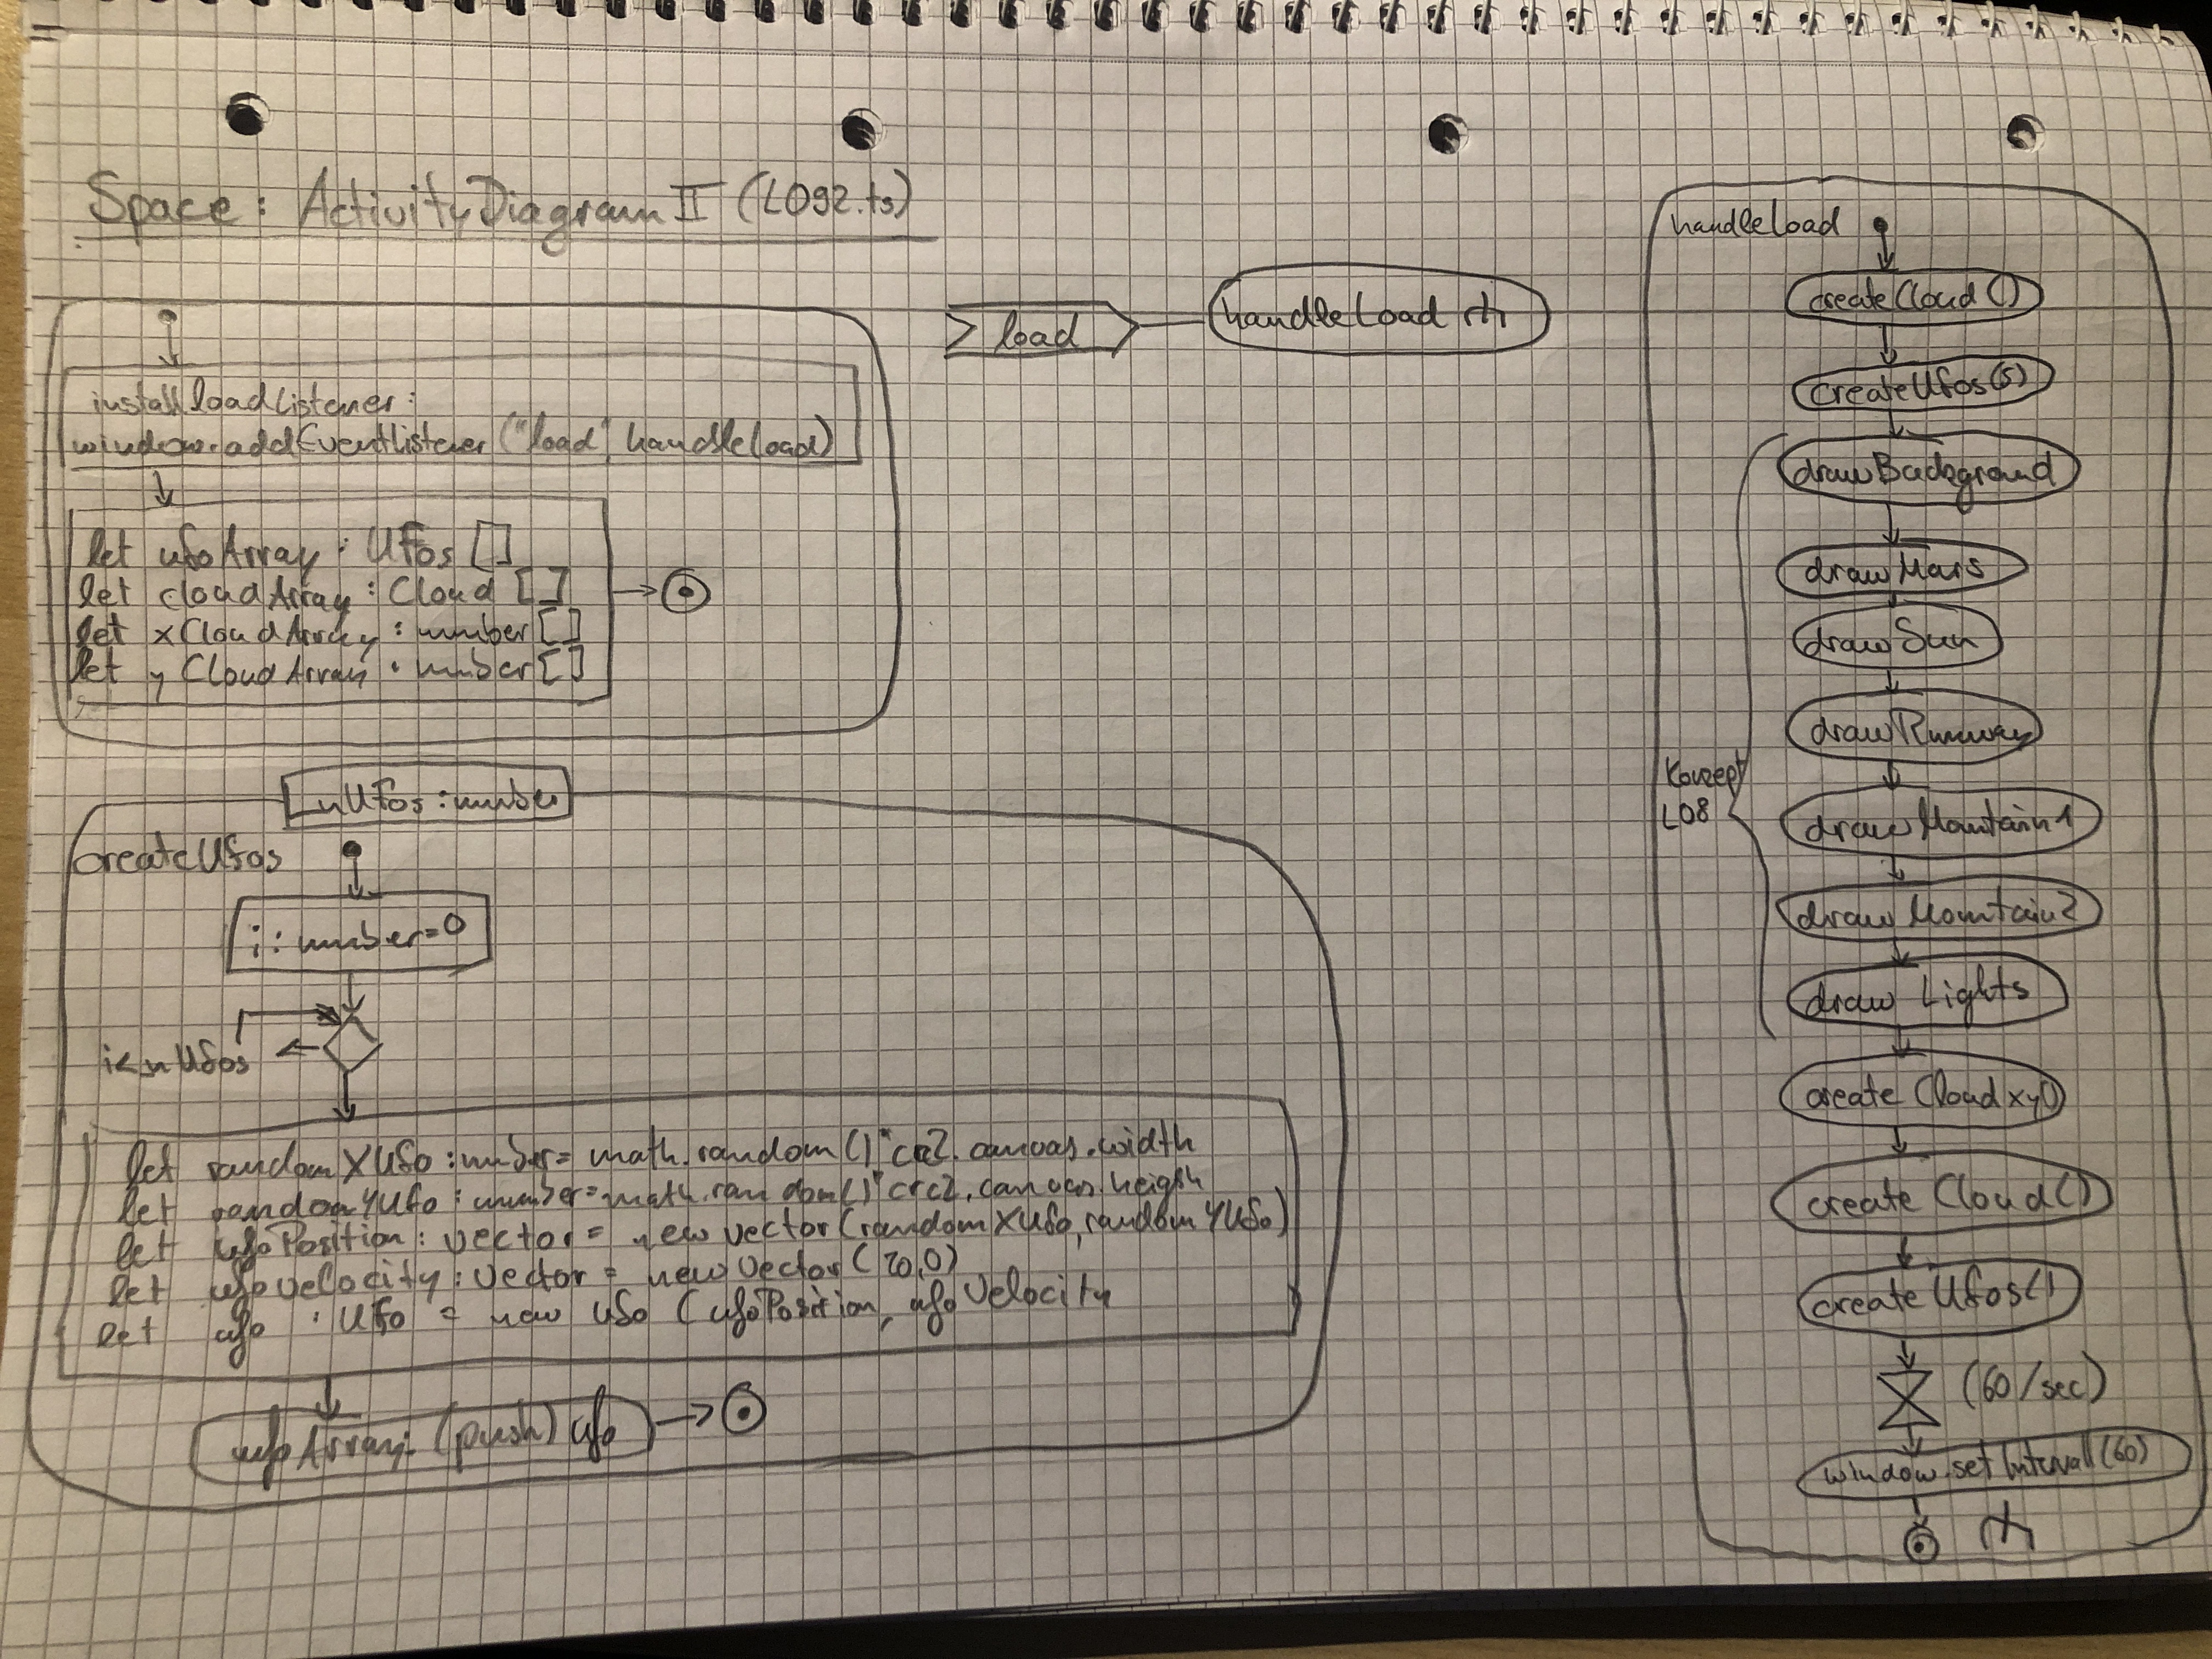 Space: Activity Diagram II (L092.ts)
install loadListener:
window.addEventListener("load", handleload)
let ufoArray : Ufos []
let cloudArray : Cloud []
let xCloudArray : number []
let yCloudArray : number []
load
handleload
nUfos : number
createUfos
i : number = 0
i < nUfos
let randomXUfo : number = math.random() * crc2.canvas.width
let randomYUfo : number = math.random() * crc2.canvas.heigh
let ufoPosition : vector = new vector (randomXUfo, randomYUfo)
let ufoVelocity : Vector = new Vector (70,0)
let ufo : Ufo = new Ufo (ufoPosition, ufoVelocity
ufoArray. (push) ufo
handleload
createCloud()
createUfos(5)
drawBackground
drawMars
drawSun
drawRunway
drawMountain1
drawMountain2
draw Lights
Konzept
L08
create Cloud xy()
create Cloud()
createUfos()
(60/sec)
window.setIntervall(60)